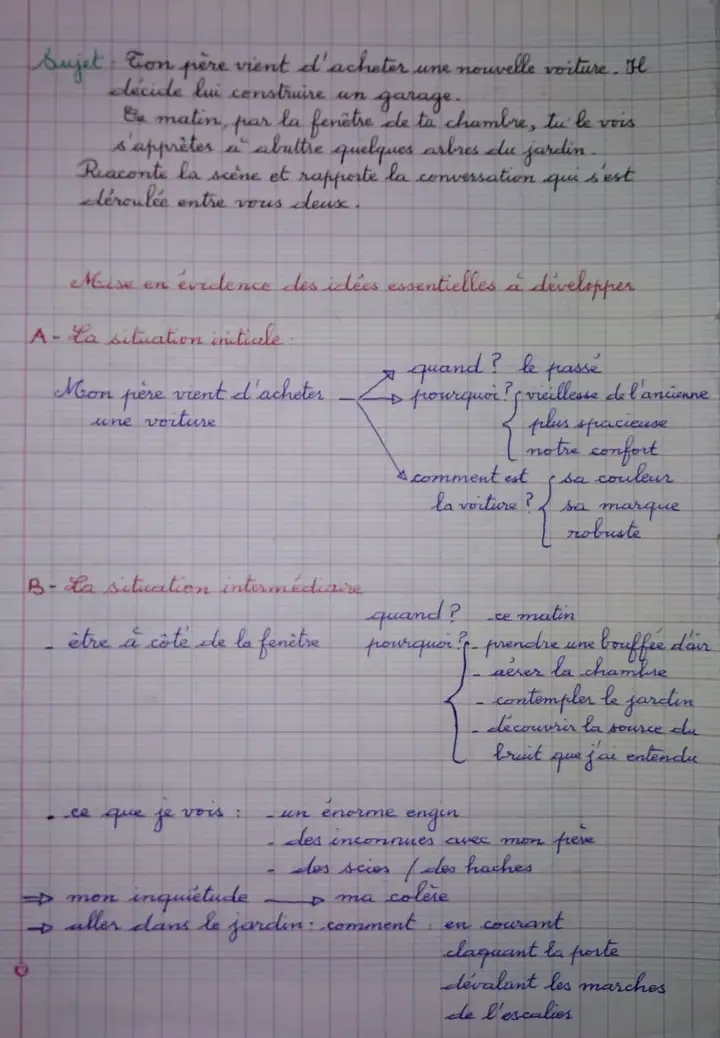 Sujet : Ton père vient d'acheter une nouvelle voiture. Il
décide lui construire un garage.
Ce matin, par la fenêtre de ta chambre, tu le vois
s'apprêter à abattre quelques arbres du jardin.
Raconte la scène et rapporte la conversation qui s'est
déroulée entre vous deux.
Mise en évidence des idées essentielles à développer
A - La situation initiale :
quand ? le passé
Mon père vient d'acheter → pourquoi ? { vieillesse de l'ancienne
une voiture plus spacieuse
notre confort
comment est { sa couleur
la voiture ? sa marque
robuste
B - La situation intermédiaire
quand ? - ce matin
- être à côté de la fenêtre pourquoi ? { - prendre une bouffée d'air
- aérer la chambre
- contempler le jardin
- découvrir la source du
bruit que j'ai entendu
• ce que je vois : - un énorme engin
- des inconnues avec mon père
- des scies / des haches
⇒ mon inquiétude → ma colère
→ aller dans le jardin : comment : en courant
claquant la porte
dévalant les marches
de l'escalier